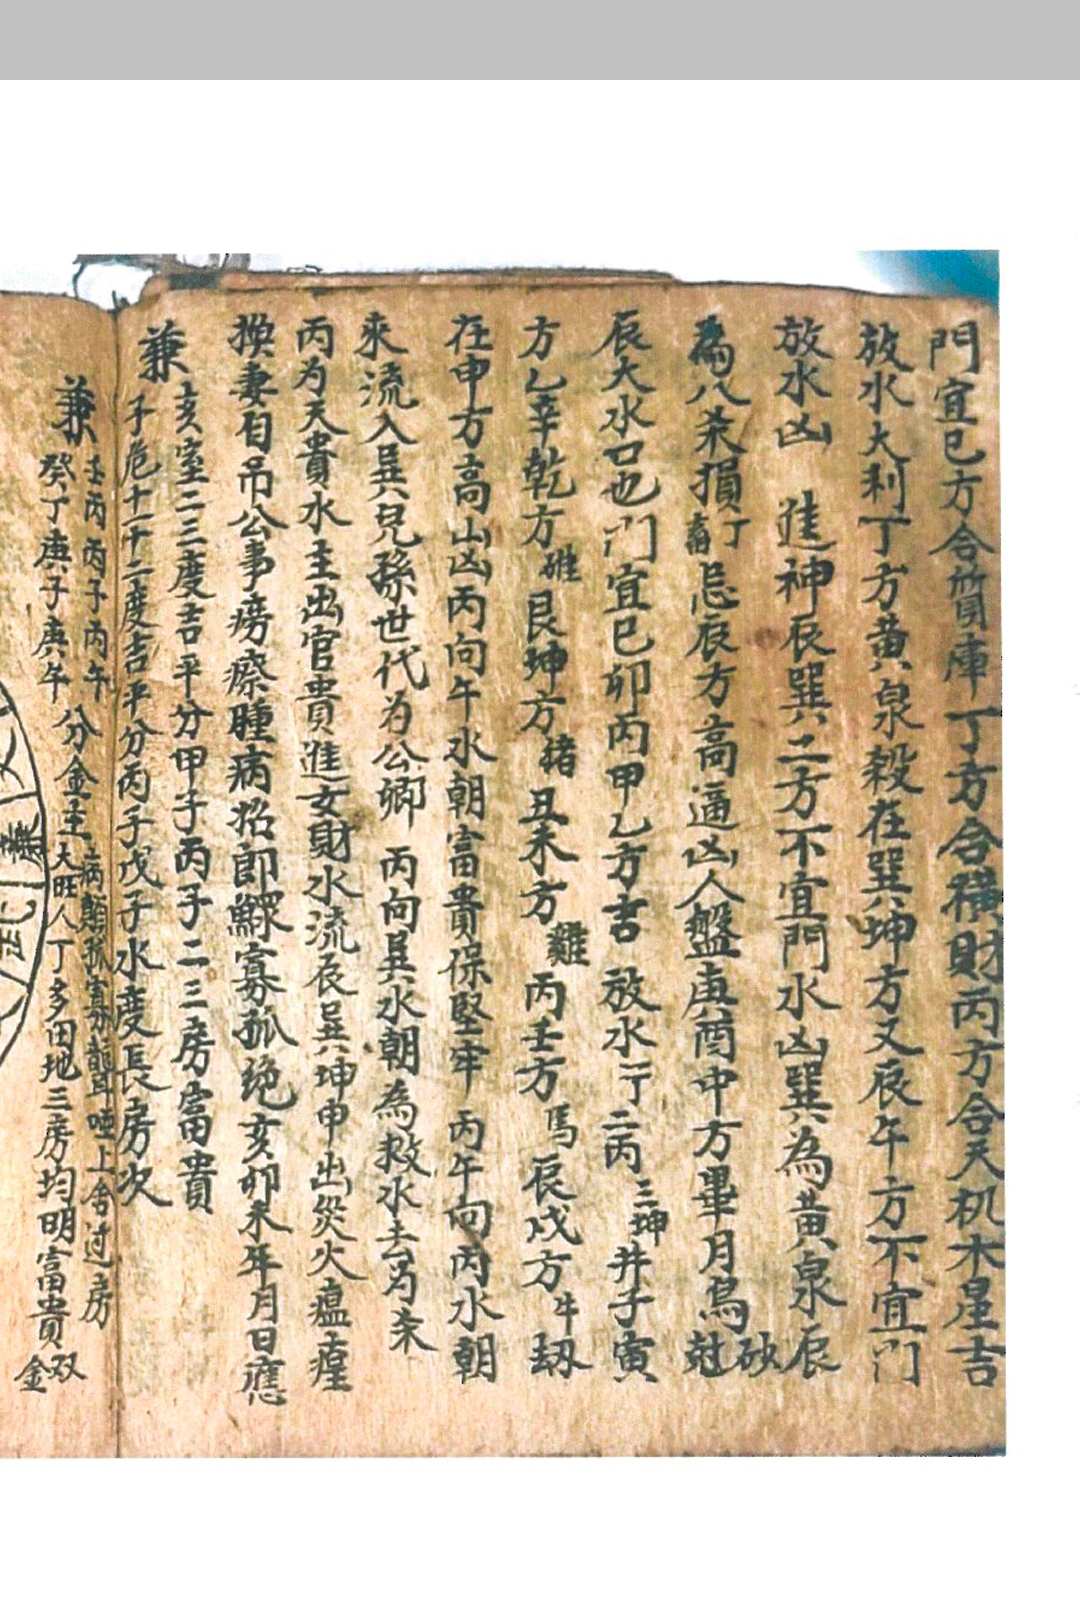 門宜巳方合質庫丁方合横財丙方合天机木星吉
放水大利丁方黄泉殺在巽坤方又辰午方不宜門
放水凶 進神辰巽二方不宜門水凶巽為黄泉辰
為八杀損丁畜忌辰方高逼凶人盤庚酉中方畢月烏尅砂
辰大水口也門宜巳卯丙甲乙方吉 放水一丁二丙三坤井子寅
方乙辛乾方碓艮坤方猪丑未方雞丙壬方馬辰戌方牛刼
在申方高山凶丙向午水朝富貴保堅牢 丙午向丙水朝
來流入巽兒孫世代为公卿 丙向巽水朝為救水去为杀
丙为天貴水主出官貴進女財水流辰巽坤申出災火瘟瘟
換妻自吊公事痨瘵腫病招郎鰥寡孤绝亥卯未年月日應
兼 亥室二三度吉平分甲子丙子二三房富貴
子危十一十二度吉平分丙子戊子水度長房次
兼 壬丙丙子丙午分金主病顛孤寡聾啞上舍过房
癸丁庚子庚午 大旺人丁多田地三房均明富貴双金